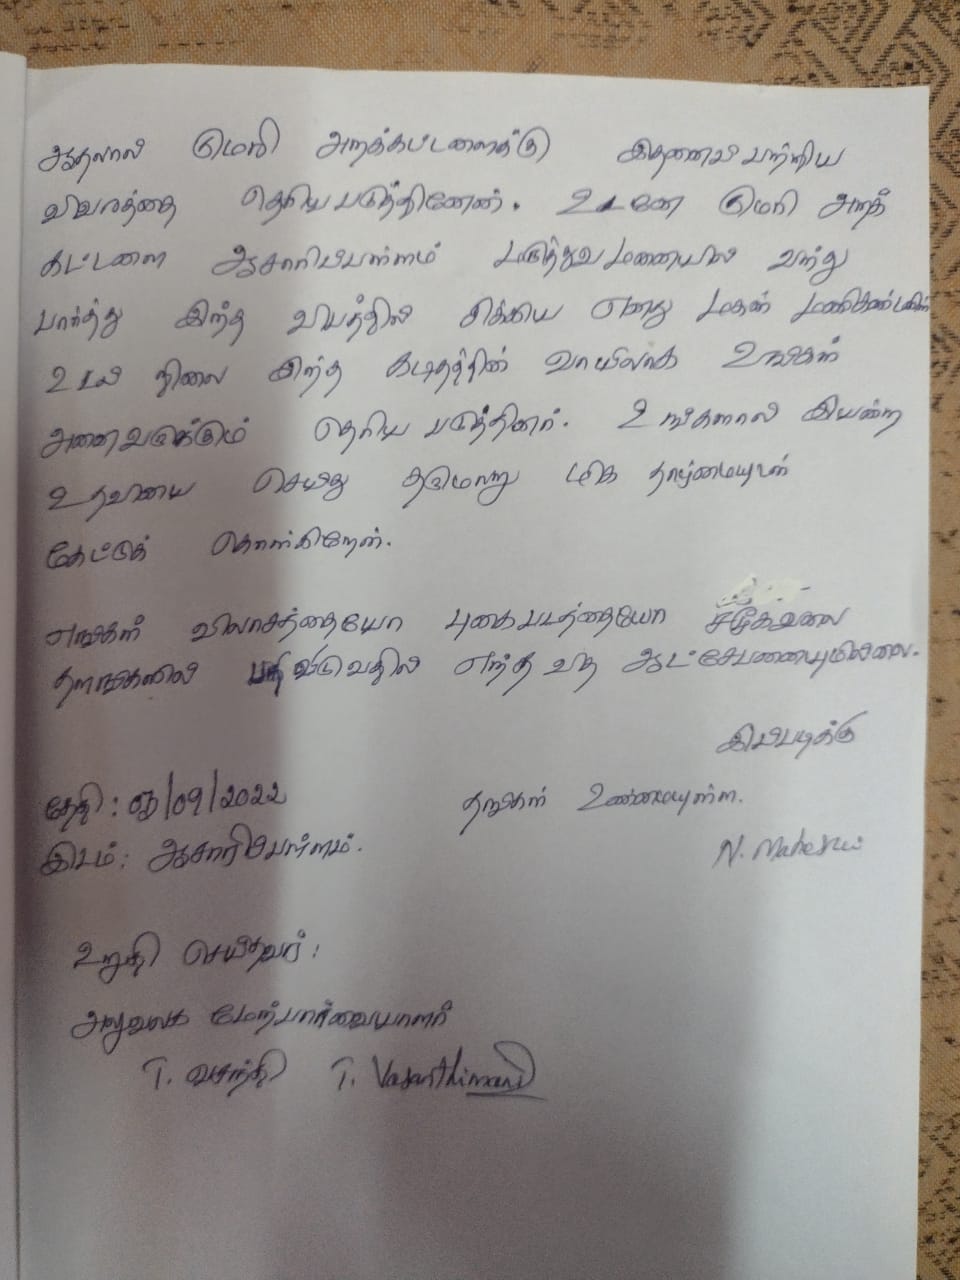 ஆதலால் மெர்சி அறக்கட்டளைக்கு இதனைப் பற்றிய
விவரத்தை தெரிய படுத்தினேன். உடனே மெர்சி அறக்
கட்டளை ஆசாரிப்பள்ளம் மருத்துவமனையில் வந்து
பார்த்து இந்த விபத்தில் சிக்கிய எனது மகன் மணிகண்டனின்
உடல் நிலை இந்த கடிதத்தின் வாயிலாக உங்கள்
அனைவருக்கும் தெரிய படுத்தினர். உங்களால் இயன்ற
உதவியை செய்து தருமாறு மிக தாழ்மையுடன்
கேட்டுக் கொள்கிறேன்.
எங்கள் விலாசத்தையோ புகைபடத்தையோ சமூகவலை
தளங்களில் பதிவிடுவதில் எந்த வித ஆட்சேபணையுமில்லை.
இப்படிக்கு
தேதி: /09/2022 தங்கள் உண்மையுள்ள.
இடம்: ஆசாரிப்பள்ளம். N. Maheswari
உறுதி செய்தவர்:
அலுவலக மேற்பார்வையாளர்
T. வசந்தி T. Vasanthimani